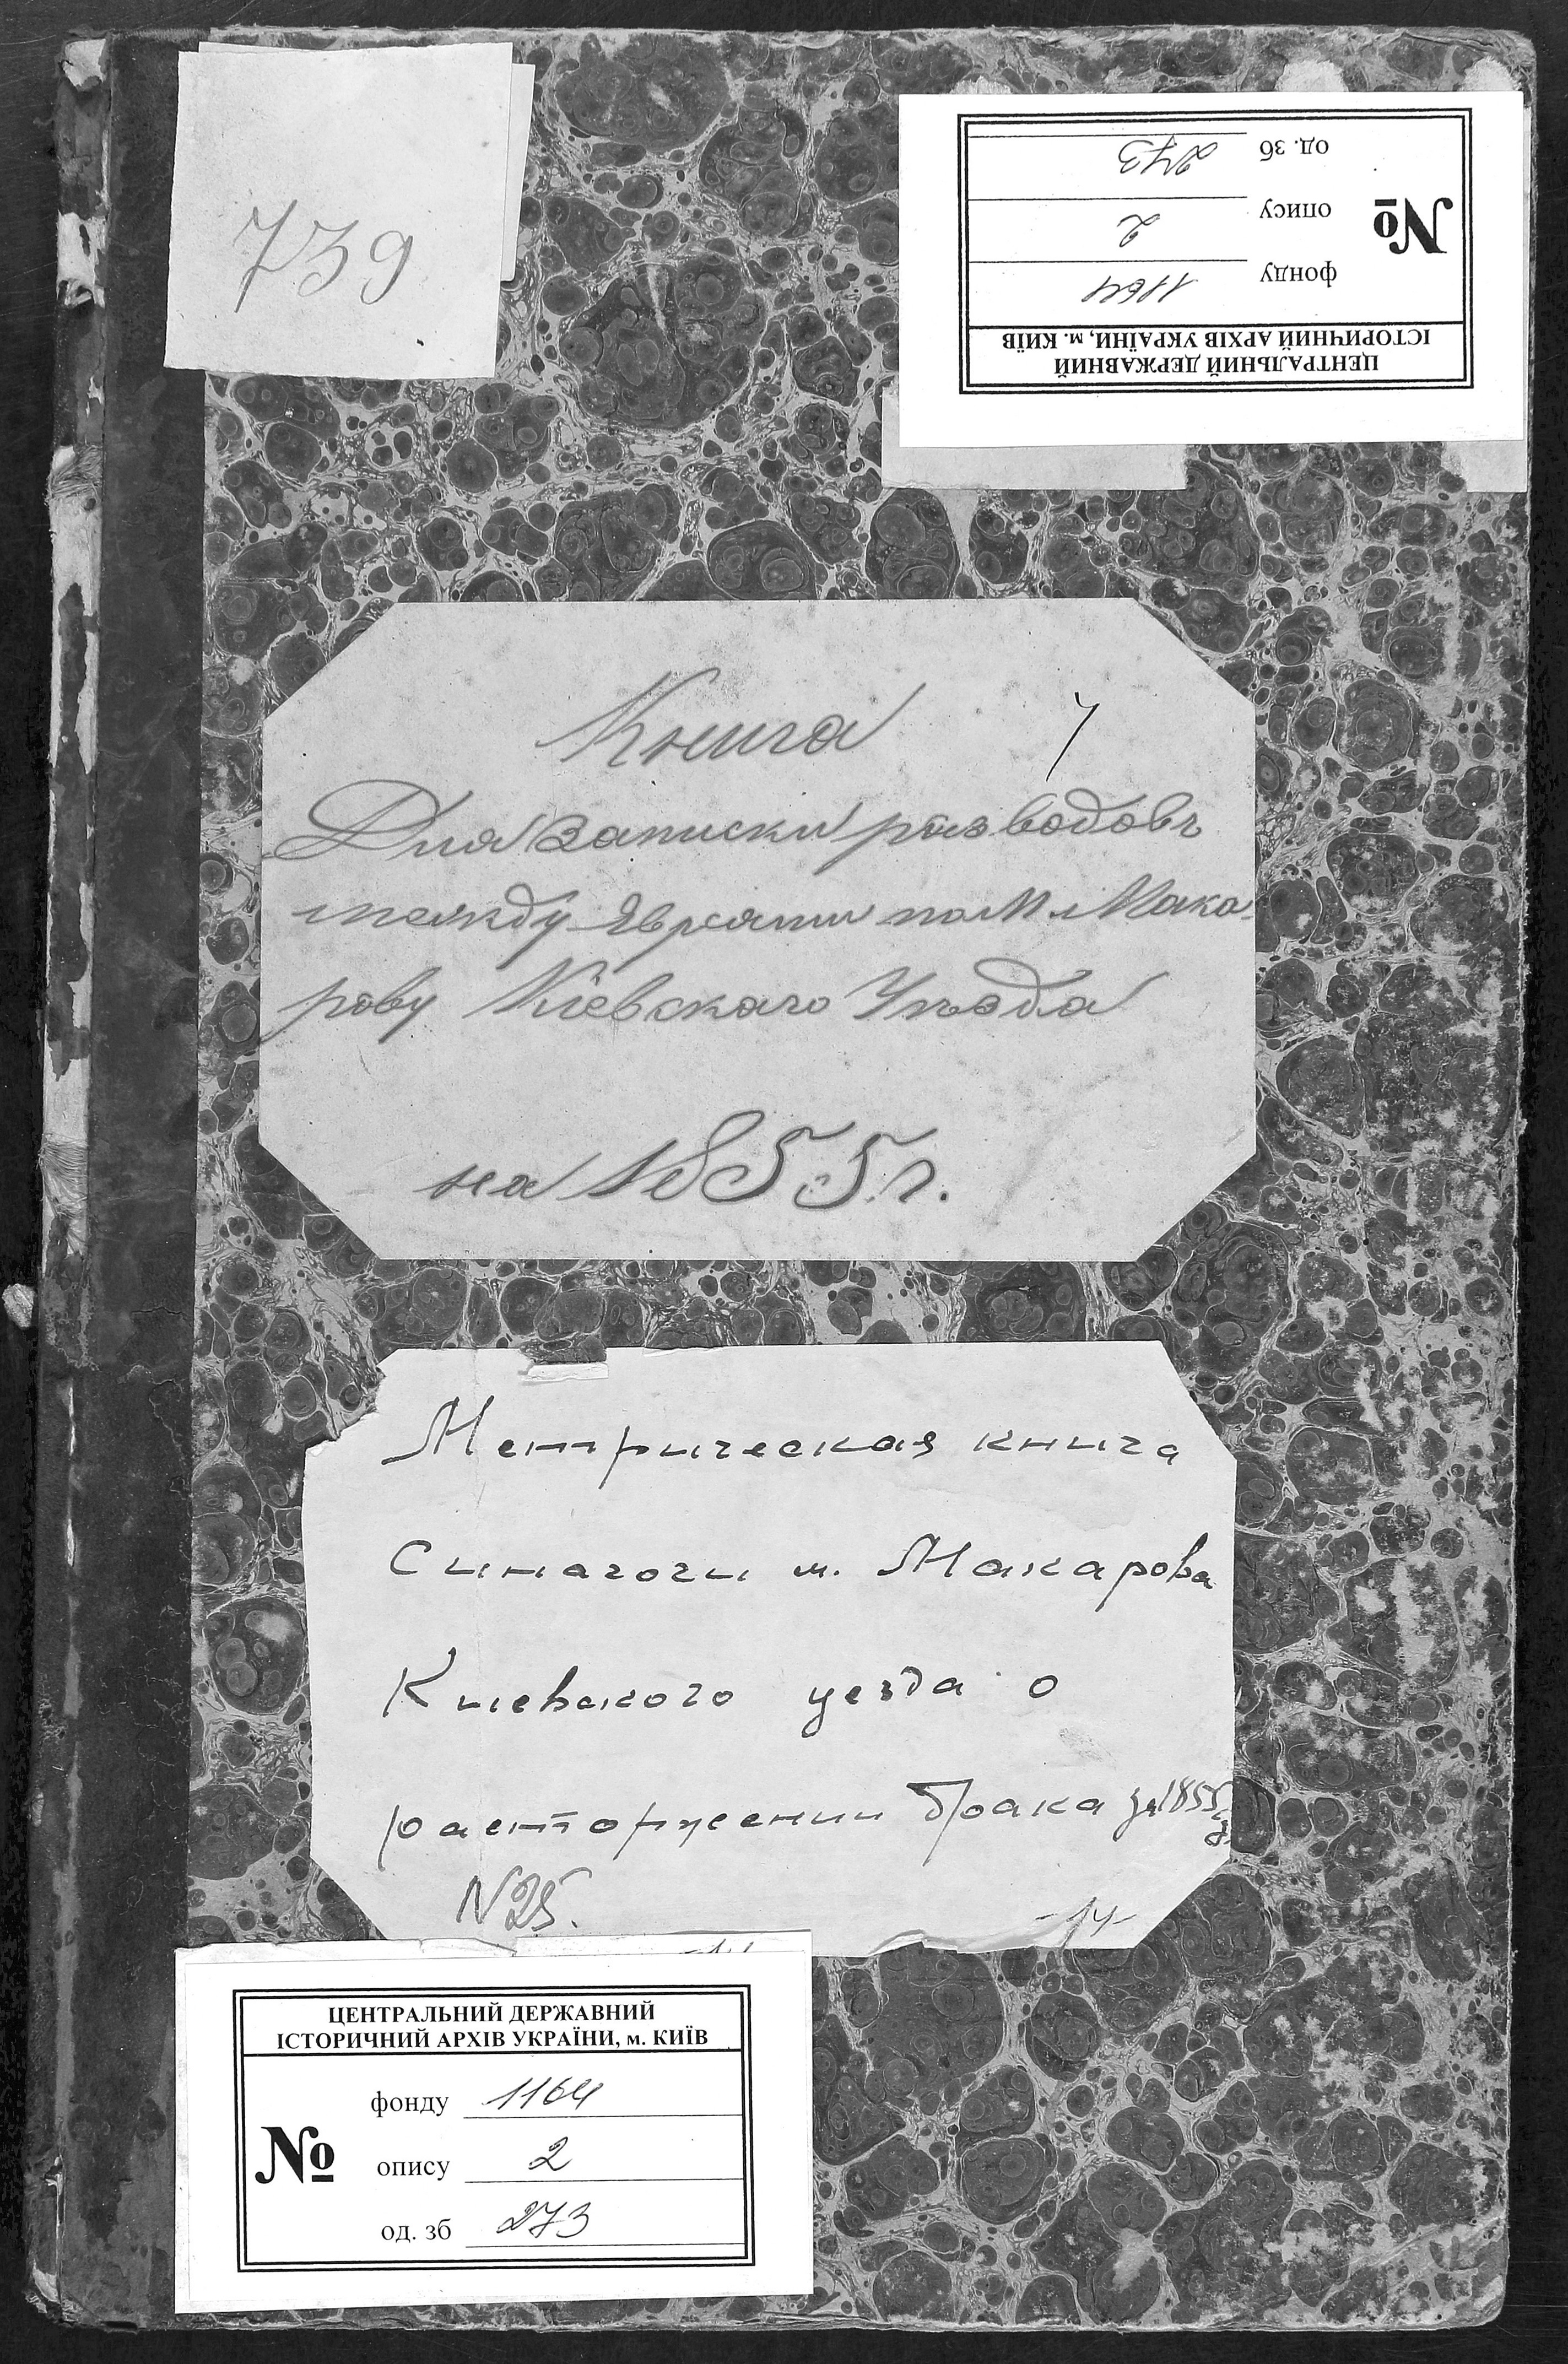 739
ЦЕНТРАЛЬНИЙ ДЕРЖАВНИЙ
ІСТОРИЧНИЙ АРХІВ УКРАЇНИ, м. КИЇВ
№
фонду 1164
опису 2
од. зб 273
Книга 7
Для записки разводовъ
между Евреями по М. Мака-
рову Кіевскаго Уѣзда
на 1855 г.
Метрическая книга
Синагоги м. Макарова
Киевского уезда о
расторжении брака за 1855 г.
N 25.
-14-
ЦЕНТРАЛЬНИЙ ДЕРЖАВНИЙ
ІСТОРИЧНИЙ АРХІВ УКРАЇНИ, м. КИЇВ
№
фонду 1164
опису 2
од. зб 273